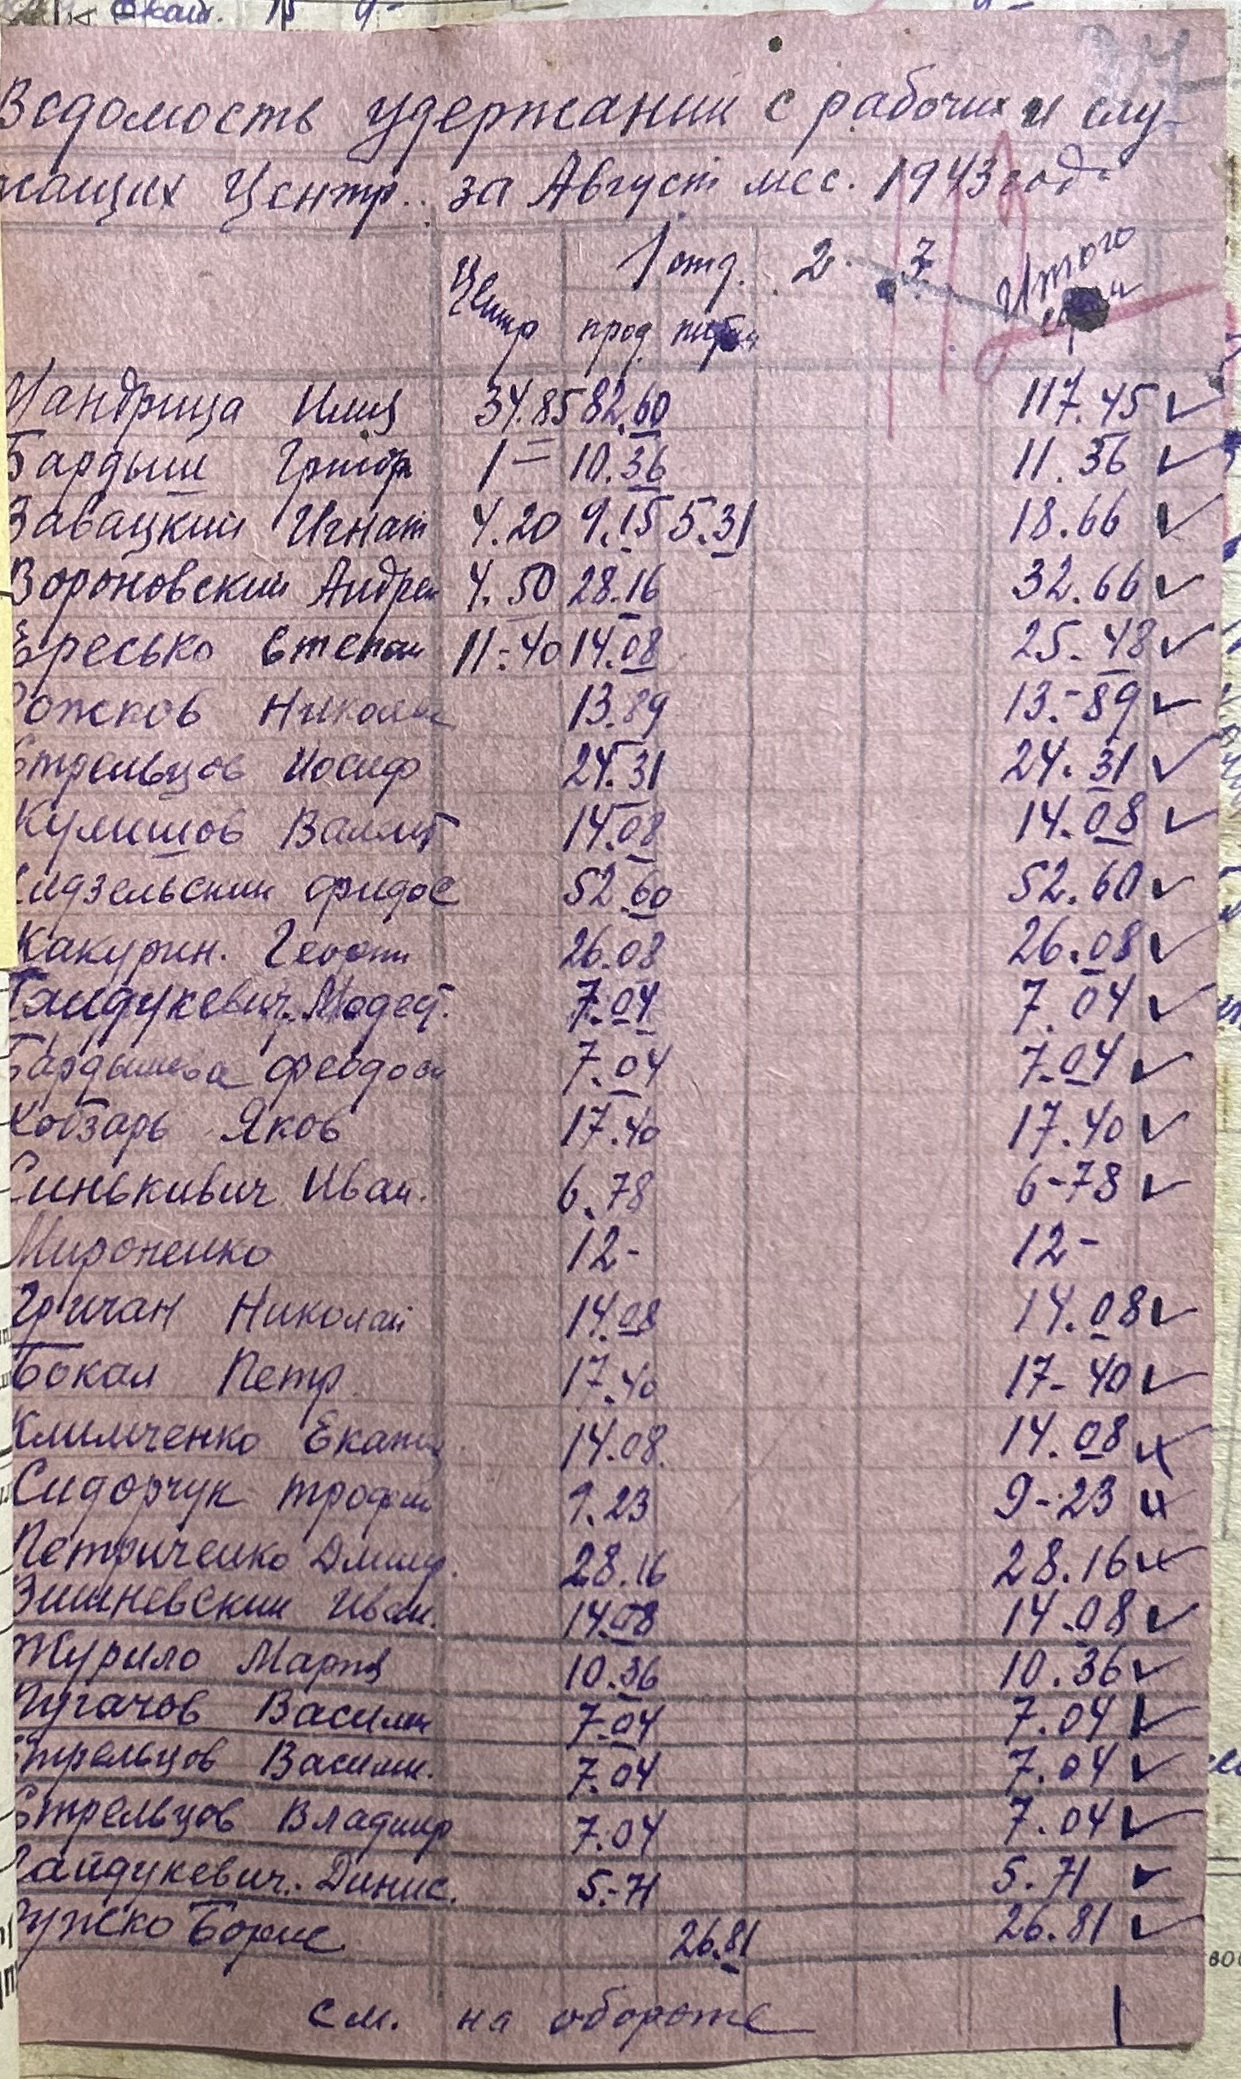 Ведомость удержаний с рабочих и слу-
жащих Центр. за Август мес. 1943 года
Центр 1 отд. 2 3 Итого
прод
Мандрица Илия 34.85 82.60 117.45
Бардыш Григор 1= 10.36 11.36
Завацкий Игнат 4.20 9.15 5.31 18.66
Вороновский Андрей 4.50 28.16 32.66
Ересько Степан 11-40 14.08 25-48
Рожков Николай 13.89 13.-89
Стрельцов Иосиф 24.31 24.31
Кулишов Валент 14.08 14.08
52.60 52.60
Какурин. Георги 26.08 26.08
Гайдукевич. Модест. 7.04 7.04
Бардышева Феодоси 7.04 7.04
Кобзарь Яков 17.40 17.40
Синькивич Иван. 6.78 6-78
Мироненко 12- 12-
Гричан Николай 14.08 14.08
Бокал Петр 17.40 17-40
Климченко Екатер 14.08. 14.08
Сидорчук Трофим 9.23 9-23
Петриченко Дмитр. 28.16 28.16
Вишневский Иван. 14.08 14.08
Журило Мария 10.36 10.36
Пугачов Василий 7.04 7.04
Стрельцов Василий. 7.04 7.04
Стрельцов Владимир 7.04 7.04
Гайдукевич. Динис. 5.-71 5.71
Борис 26.81 26.81
см. на обороте